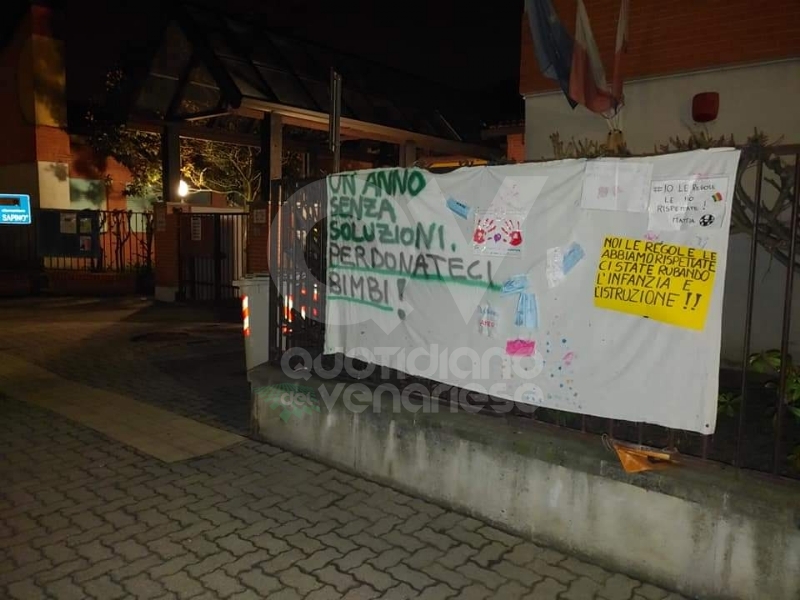 UN ANNO
SENZA
SOLUZIONI.
PERDONATECI
BIMBI!
IO LE REGOLE
LE HO
RISPETTATE!
MATTIA
NOI LE REGOLE LE
ABBIAMO RISPETTATE
CI STATE RUBANDO
L'INFANZIA E
L'ISTRUZIONE!!
SAPINO"
QV
QUOTIDIANO
DEL VENARIESE